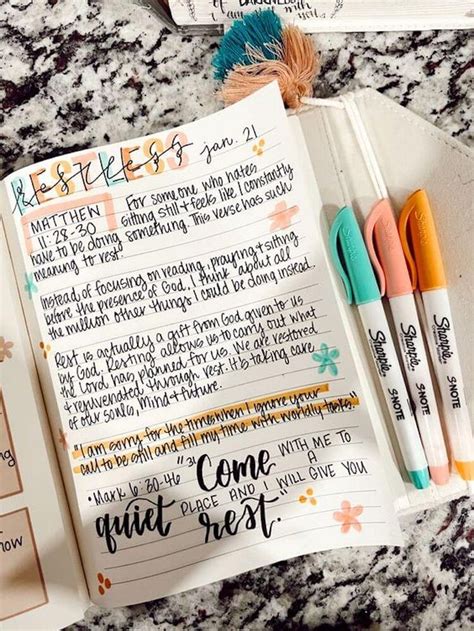 I am with you.
RESTLESS
restless jan. 21
MATTHEW
11:28-30
For someone who hates
sitting still + feels like I constantly
have to be doing something. This verse has such
meaning to rest.
Instead of focusing on reading, praying + sitting
before the presence of God, I think about all
the million other things I could be doing instead.
Rest is actually a gift from God given to us
by God. Resting allows us to carry out what
the Lord has planned for us. We are restored
& rejuvenated through rest. It is taking care
of our souls, mind + future.
"I am sorry for the times when I ignore your
call to be still and fill my time with worldly tasks."
"Mark 6:30-46 "31 Come WITH ME TO
A
quiet PLACE AND I WILL GIVE YOU
rest."
now
Sharpie
S·NOTE
Sharpie
S·NOTE
Sharpie
S·NOTE